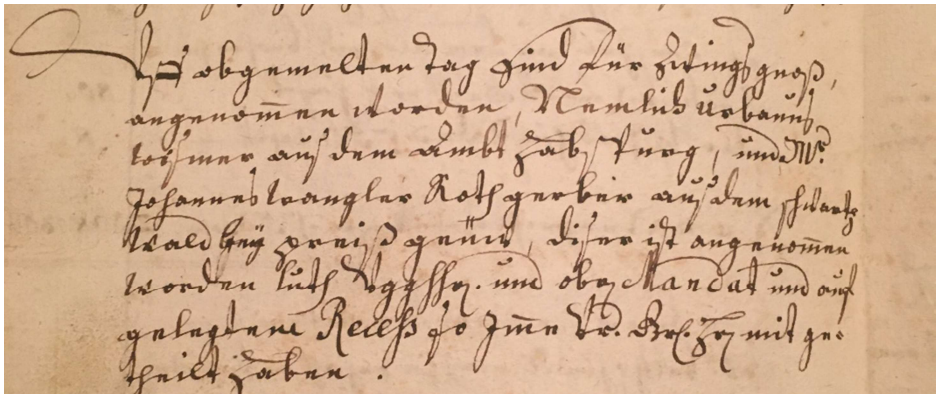 Uff obgemelten tag sind für Zitingsgnoß,
angenom̅en worden, Nemlich Urbanus
wismer aus dem Ambt Habspurg, und Mr.
Johannes wangler Rothgerber aus dem schwartz
wald bey preiß geüw, diser ist angenom̅en
worden luth Vgghhr. und obr Mandat und auf
gelegtem Recess so Im̅e Vr. hr mit ge-
theilt haben.